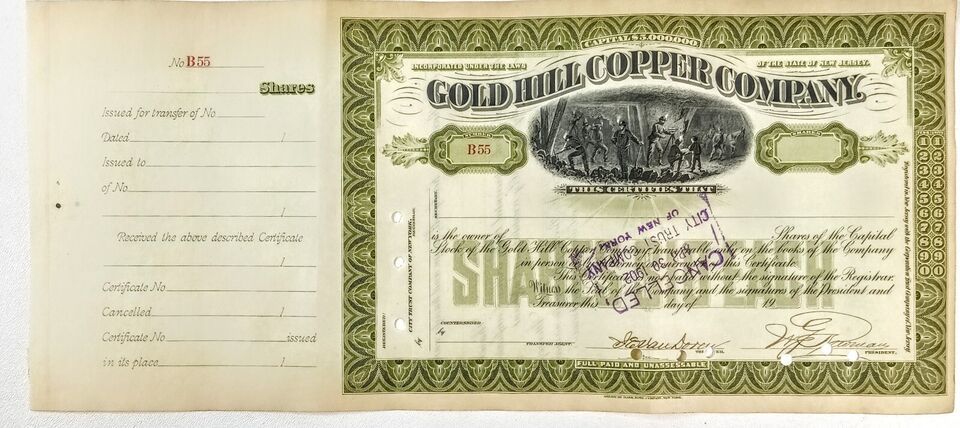 No B55
Shares
Issued for transfer of No
Dated 1
Issued to
of No
1
Received the above described Certificate
1
Certificate No
Cancelled 1
Certificate No issued
in its place 1
CAPITAL $5,000,000
INCORPORATED UNDER THE LAWS OF THE STATE OF NEW JERSEY.
GOLD HILL COPPER COMPANY.
NUMBER SHARES
B55
THIS CERTIFIES THAT
is the owner of Shares of the Capital
Stock of the Gold Hill Copper only on the books of the Company
in person this Certificate
This without the signature of the Registrar.
Witness the Seal of the Company and the signatures of the President and
Treasurer this day of 19
SHARES EACH
CANCELLED,
CITY TRUST COMPANY
OF NEW YORK,
30 1902
REGISTERED:
CITY TRUST COMPANY OF NEW YORK,
REGISTRAR.
by
SECRETARY.
COUNTERSIGNED
by
TRANSFER AGENT.
PRESIDENT.
FULL PAID AND UNASSESSABLE